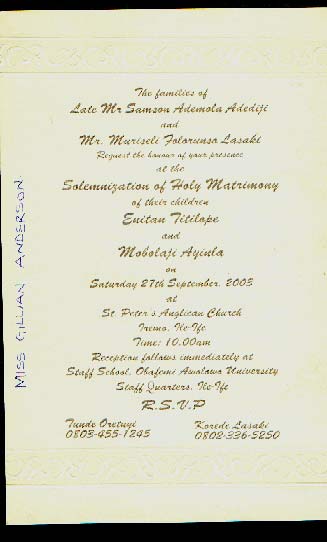 The families of
Late Mr Samson Ademola Adediji
and
Mr. Muriseli Folorunso Lasaki
Request the honour of your presence
at the
Solemnization of Holy Matrimony
of their children
Enitan Titilope
and
Mobolaji Ayinla
on
Saturday 27th September, 2003
at
St. Peter's Anglican Church
Iremo, Ile-Ife
Time: 10.00am
Reception follows immediately at
Staff School, Obafemi Awolowo University
Staff Quarters, Ile-Ife
R.S.V.P
Tunde Oretuyi
0803-455-1245
Korede Lasaki
0802-336-5250
MISS GILLIAN ANDERSON